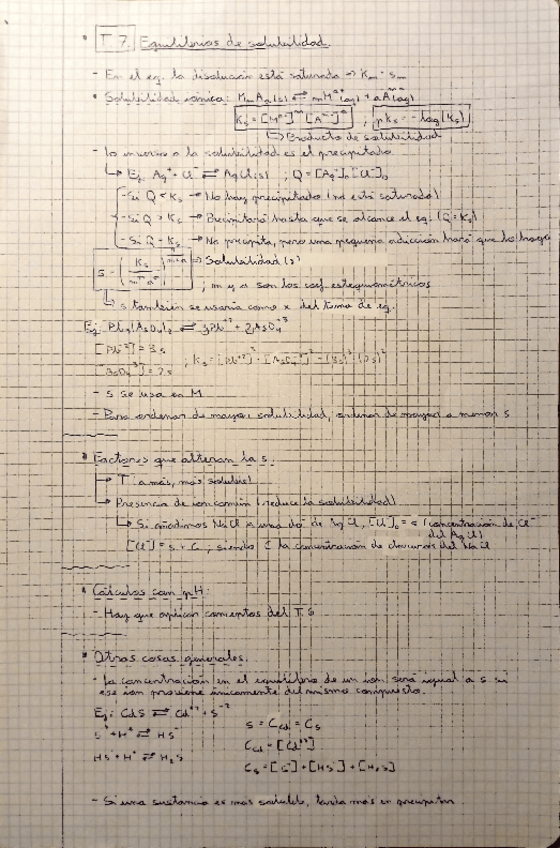 • T 7. Equilibrios de solubilidad.
- En el eq. la disolución está saturada →
• Solubilidad iónica: KmAa(s) ⇌ mM^a+(aq) + aA^m-(aq)
Ks = [M^a+]^m [A^m-]^a ; pKs = -log(Ks)
↳ Producto de solubilidad
- Lo inverso a la solubilidad es el precipitado
↳ Ej: Ag+ + Cl- ⇌ AgCl(s) ; Q = [Ag+]o [Cl-]o
- Si Q < Ks → No hay precipitado (no está saturado)
- Si Q > Ks → Precipitará hasta que se alcance el eq. (Q = Ks)
- Si Q = Ks → No precipita, pero una pequeña adicción hará que lo haga
s = (Ks / m^m a^a)^(1/(m+a)) → Solubilidad (s) ; m y a son los coef. estequiométricos
↳ s también se usaría como x del tema de eq.
Ej: Pb3(AsO4)2 ⇌ 3Pb+2 + 2AsO4-3
[Pb+2] = 3s
[AsO4-3] = 2s ; Ks = [Pb+2]^3 · [AsO4-3]^2 = (3s)^3 · (2s)^2
- s se usa en M
- Para ordenar de mayor solubilidad, ordenar de mayor a menor s
• Factores que alteran la s.
→ T: a más, más soluble
→ Presencia de ion común (reduce la solubilidad)
↳ Si añadimos NaCl a una dol de AgCl, [Cl-]o = s (concentración de Cl- del AgCl)
[Cl-] = s + C ; siendo C la concentración de cloruros del NaCl
• Cálculos con pH:
- Hay que aplicar conceptos del T.6
• Otras cosas generales.
- La concentración en el equilibrio de un ion será igual a s si
ese ion proviene únicamente del mismo compuesto.
Ej: CdS ⇌ Cd+2 + S-2
S- + H+ ⇌ HS- s = CCd = CS
HS- + H+ ⇌ H2S CCd = [Cd+2]
CS = [S-] + [HS-] + [H2S]
- Si una sustancia es más soluble, tarda más en precipitar